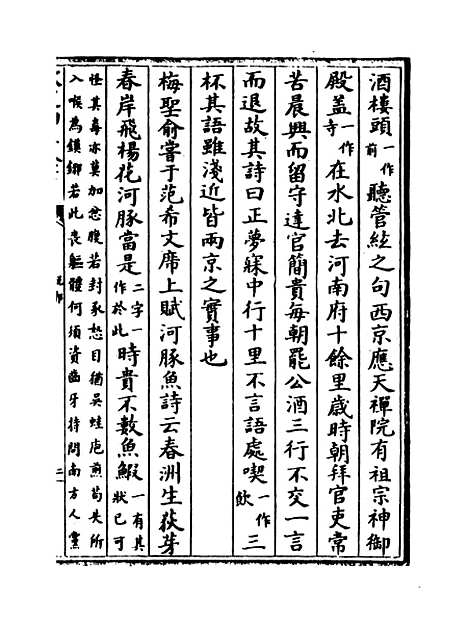 酒樓頭一作前聽管絃之句西京應天禪院有祖宗神御
殿蓋一作寺在水北去河南府十餘里歲時朝拜官吏常
苦晨興而留守達官簡貴每朝罷公酒三行不交一言
而退故其詩曰正夢寐中行十里不言語處喫一作飲三
杯其語雖淺近皆兩京之實事也
梅聖俞嘗于范希文席上賦河豚魚詩云春洲生荻芽
春岸飛楊花河豚當是二字一作於此時貴不數魚鰕一有其狀已可
怪其毒亦莫加忿腹若封豕怒目猶吳蛙庖煎苟失所
入喉為鏌鋣若此喪軀體何須資齒牙持問南方人黨